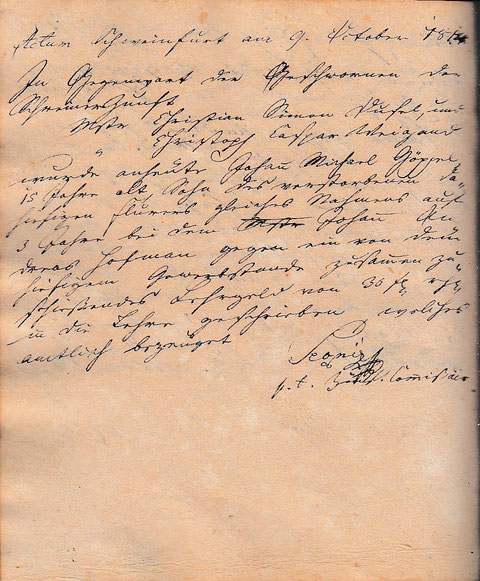 Actum Schweinfurt am 9. October 181
In Gegenwart der Geschwornen der
Schreinerzunft
Mstr Christian Simon Dusel, und
Christoph Caspar Weigand
wurde anheute Johañ Michael Göppel
15 Jahre alt Sohn des verstorbenen da=
hiesigen gleiches Nahmens auf
3 Jahre bei dem Mstr Johañ An
dreas Hofman gegen ein von dem
hiesigem Gewerbstande zusammen zu
schießendes Lehrgeld von 36 fl
in die Lehre geschrieben welches
amtlich bezeuget
p. t. Commissair